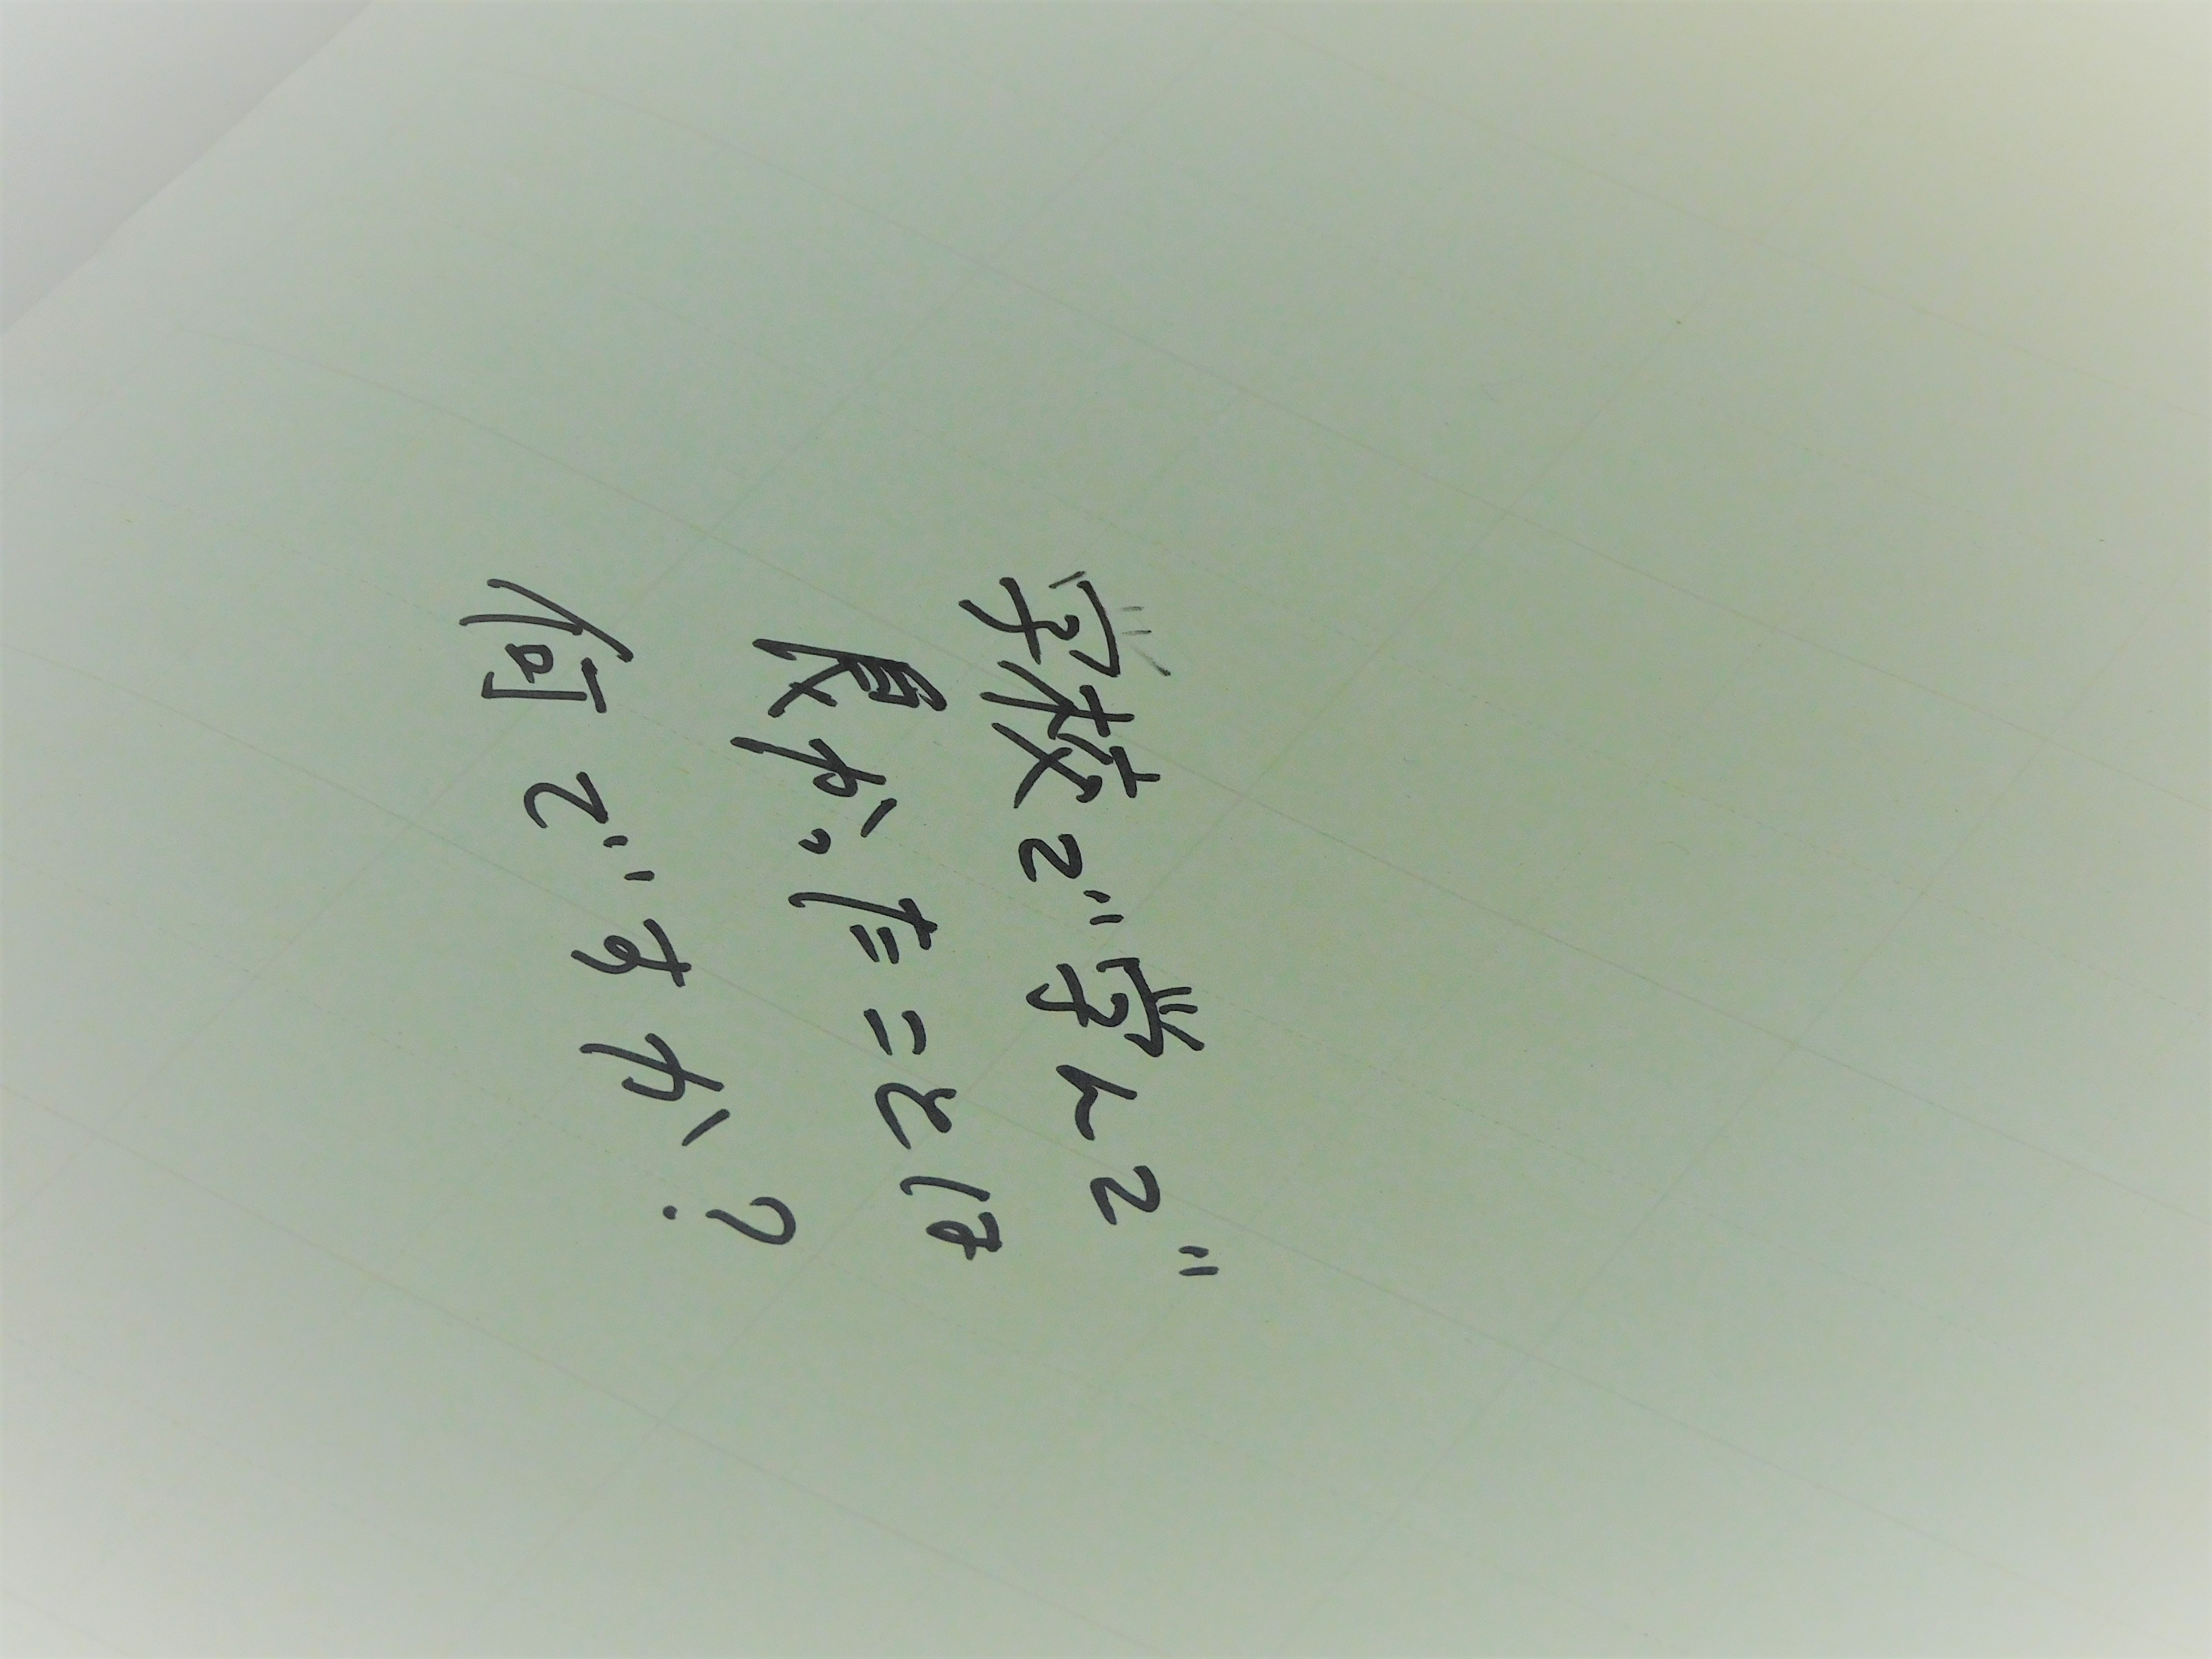 学校で学んで
良かったことは
何ですか?